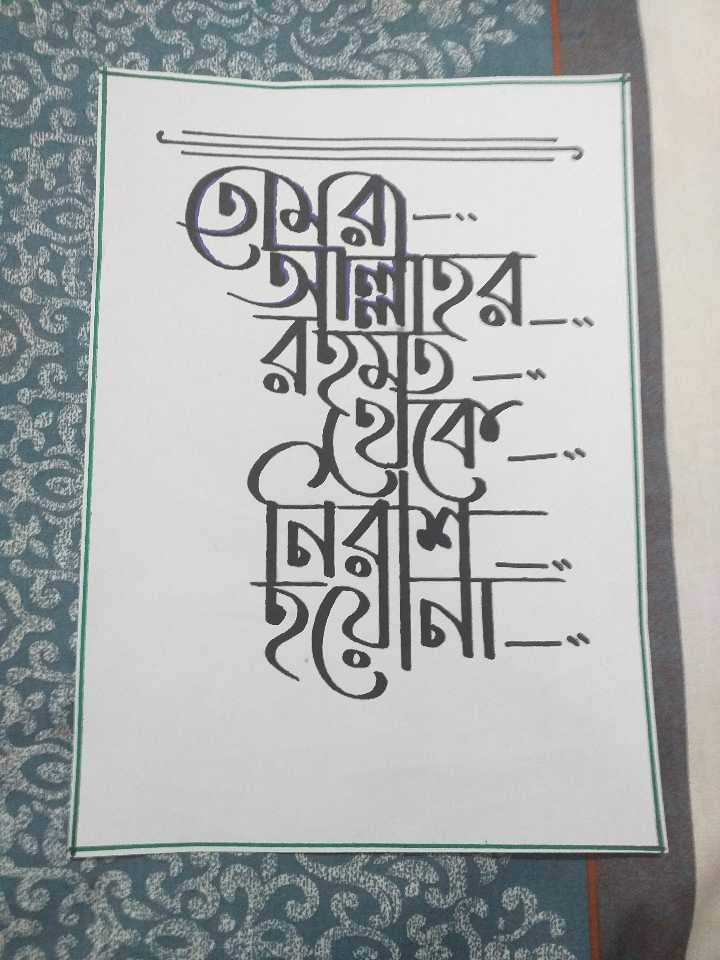 তোমরা
আল্লাহর
রহমত
থেকে
নিরাশ
হয়ো না